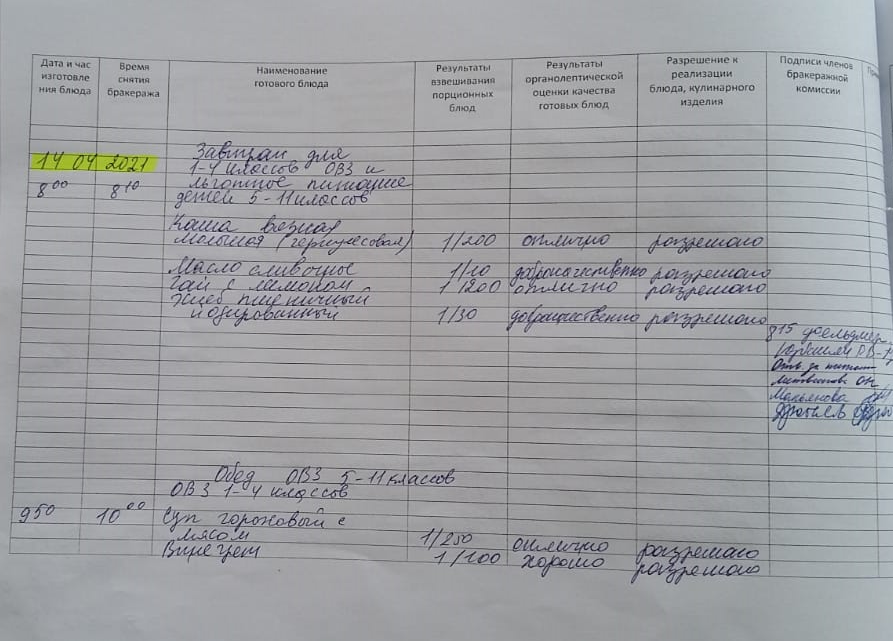 Дата и час изготовле ния блюда
Время снятия бракеража
Наименование готового блюда
Результаты взвешивания порционных блюд
Результаты органолептической оценки качества готовых блюд
Разрешение к реализации блюда, кулинарного изделия
Подписи членов бракеражной комиссии
14 04 2021
Завтрак для
1-4 классов ОВЗ и
8⁰⁰ 8¹⁰ льготное питание
детей 5-11 классов
Каша вязкая
молочная (геркулесовая) 1/200 отлично разрешаю
Масло сливочное 1/10 доброкачественно разрешаю
Чай с лимоном 1/200 отлично разрешаю
Хлеб пшеничный
йодированный 1/30 доброкачественно разрешаю
8 15 фельдшер
Отв за питание
Обед ОВЗ 5-11 классов
ОВЗ 1-4 классов
9 50 10⁰⁰ Суп гороховый с
мясом 1/250 отлично разрешаю
Винегрет 1/100 хорошо разрешаю